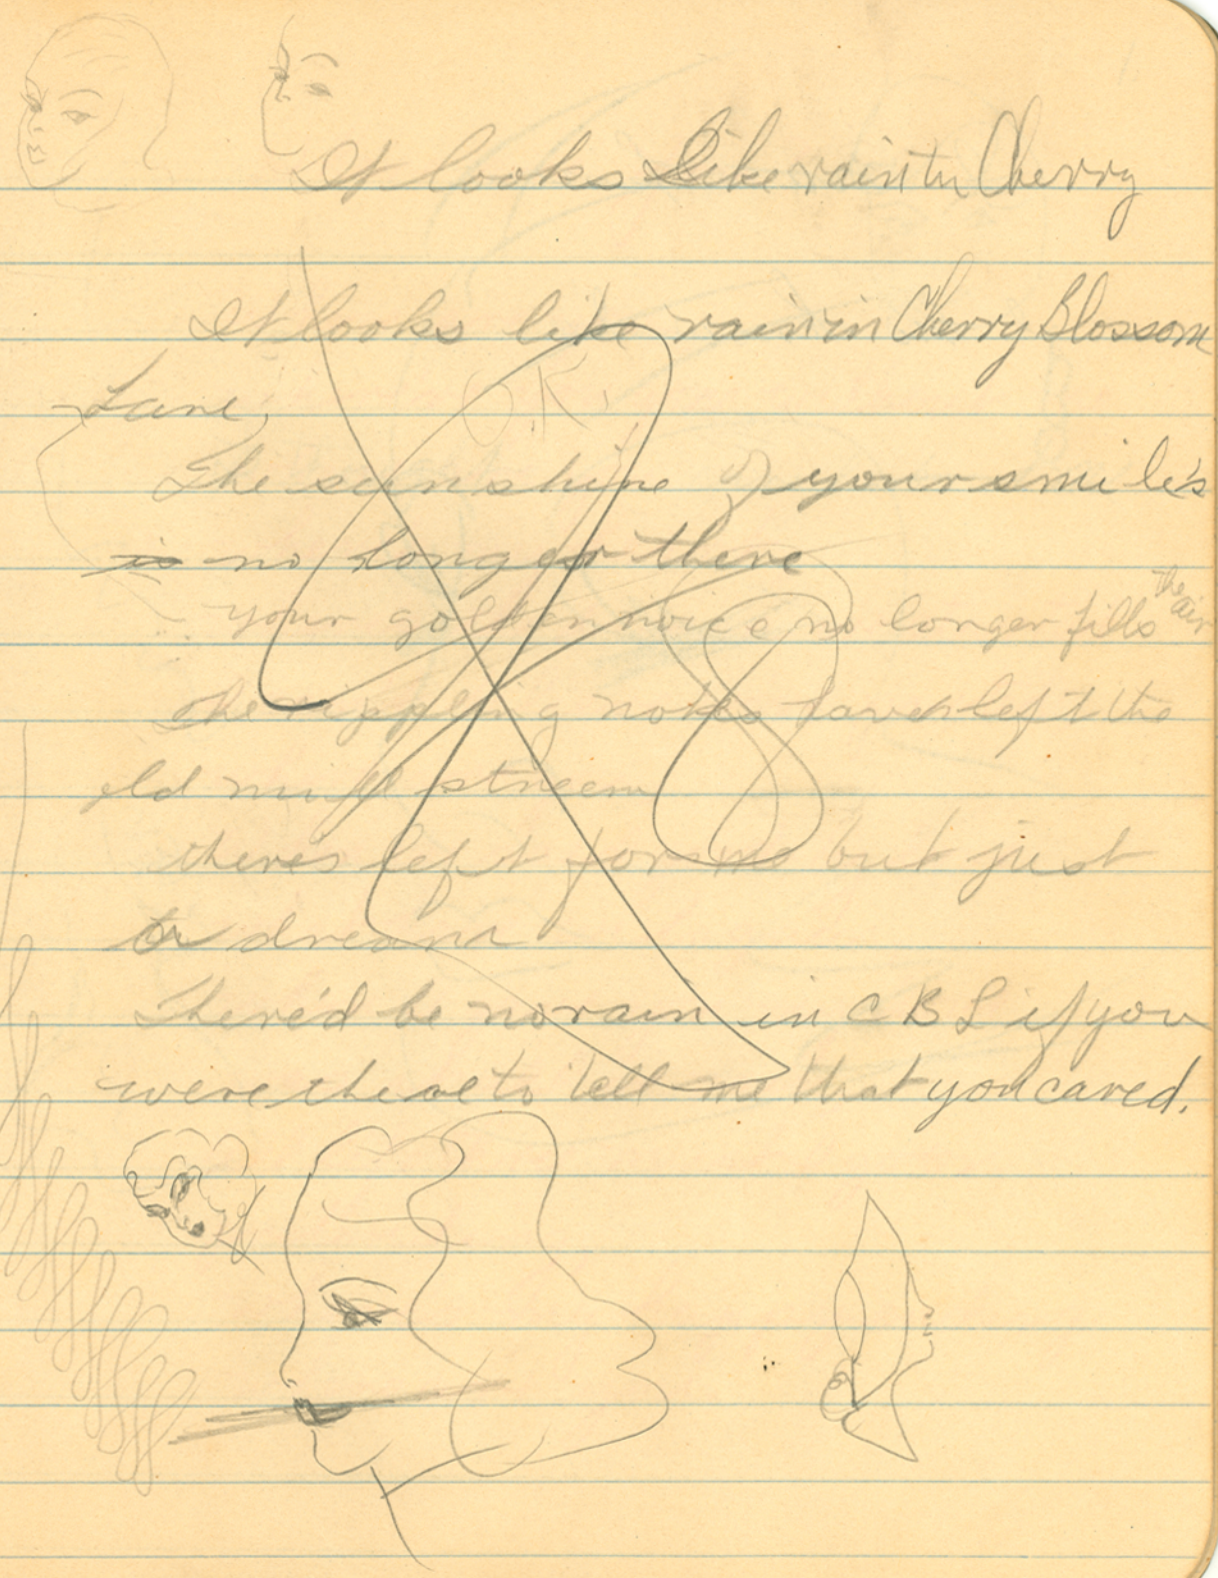 It looks Like rain in Cherry
It looks like rain in Cherry Blossom
Lane,
O.K.
The sunshine of your smile's
is no longer there
your golden voice no longer fills the air
the rippling notes have left the
old mill stream
theres left for me but just
to dream
There'd be no rain in C B L if you
were there to tell me that you cared.